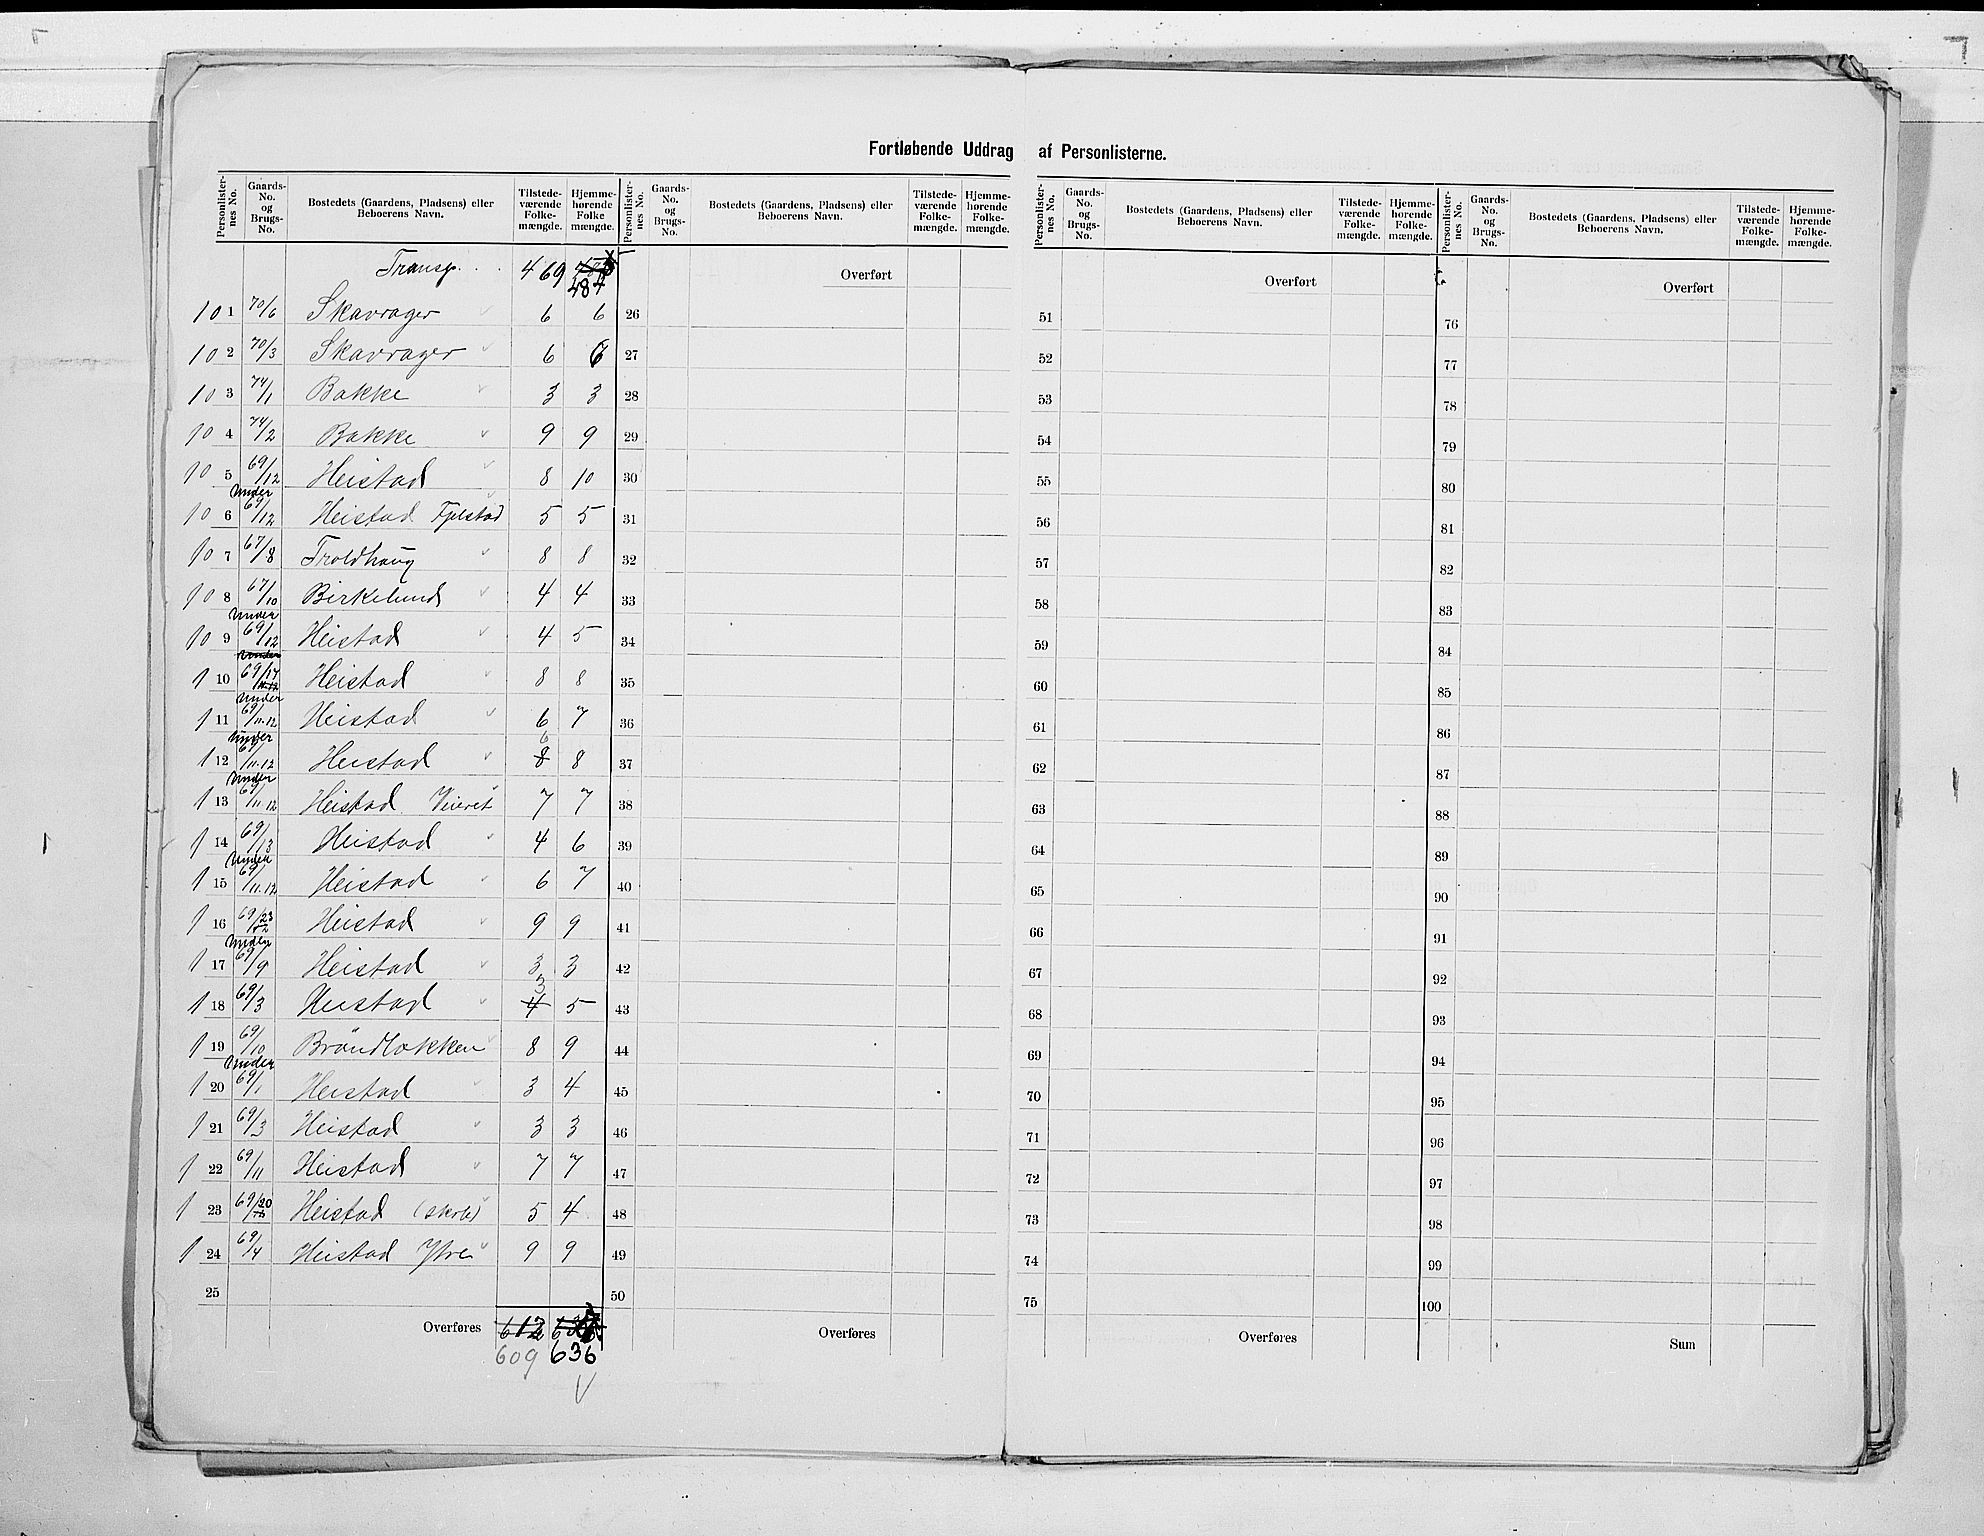 Fortløbende Uddrag af Personlisterne.
Personlister-nes No. Gaards-No. og Brugs-No. Bostedets (Gaardens, Pladsens) eller Beboerens Navn. Tilstede-værende Folke-mængde. Hjemme-hørende Folke mængde.
Transp. . . 469 484
101 70/6 Skavrager 6 6
102 70/3 Skavrager 6 6
103 74/1 Bakke 3 3
104 74/2 Bakke 9 9
105 69/12 Heistad 8 10
106 Under 69/12 Heistad Fjelstad 5 5
107 67/8 Troldhaug 8 8
108 67/10 Birkelund 4 4
109 Under 69/12 Heistad 4 5
110 69/17 Heistad 8 8
111 Under 69/11.12 Heistad 6 7
112 Under 69/11.12 Heistad 8 6 8
113 Under 69/11.12 Heistad Veieret 7 7
114 69/13 Heistad 4 6
115 Under 69/11.12 Heistad 6 7
116 69/23 Heistad 9 9
117 Under 69/9 Heistad 3 3
118 69/3 Heistad 4 3 5
119 69/10 Bröndløkken 8 9
120 Under 69/1 Heistad 3 4
121 69/3 Heistad 3 3
122 69/11 Heistad 7 7
123 69/20 Heistad 5 4
124 69/4 Heistad Ytre 9 9
25
Overføres 612
609 636
Personlister-nes No. Gaards-No. og Brugs-No. Bostedets (Gaardens, Pladsens) eller Beboerens Navn. Tilstede-værende Folke-mængde. Hjemme-hørende Folke-mængde.
Overført
26
27
28
29
30
31
32
33
34
35
36
37
38
39
40
41
42
43
44
45
46
47
48
49
50
Overføres
Personlister-nes No. Gaards-No. og Brugs-No. Bostedets (Gaardens, Pladsens) eller Beboerens Navn. Tilstede-værende Folke-mængde. Hjemme-hørende Folke-mængde.
Overført
51
52
53
54
55
56
57
58
59
60
61
62
63
64
65
66
67
68
69
70
71
72
73
74
75
Overføres
Personlister-nes No. Gaards-No. og Brugs-No. Bostedets (Gaardens, Pladsens) eller Beboerens Navn. Tilstede-værende Folke-mængde. Hjemme-hørende Folke-mængde.
Overført
76
77
78
79
80
81
82
83
84
85
86
87
88
89
90
91
92
93
94
95
96
97
98
99
100
Sum